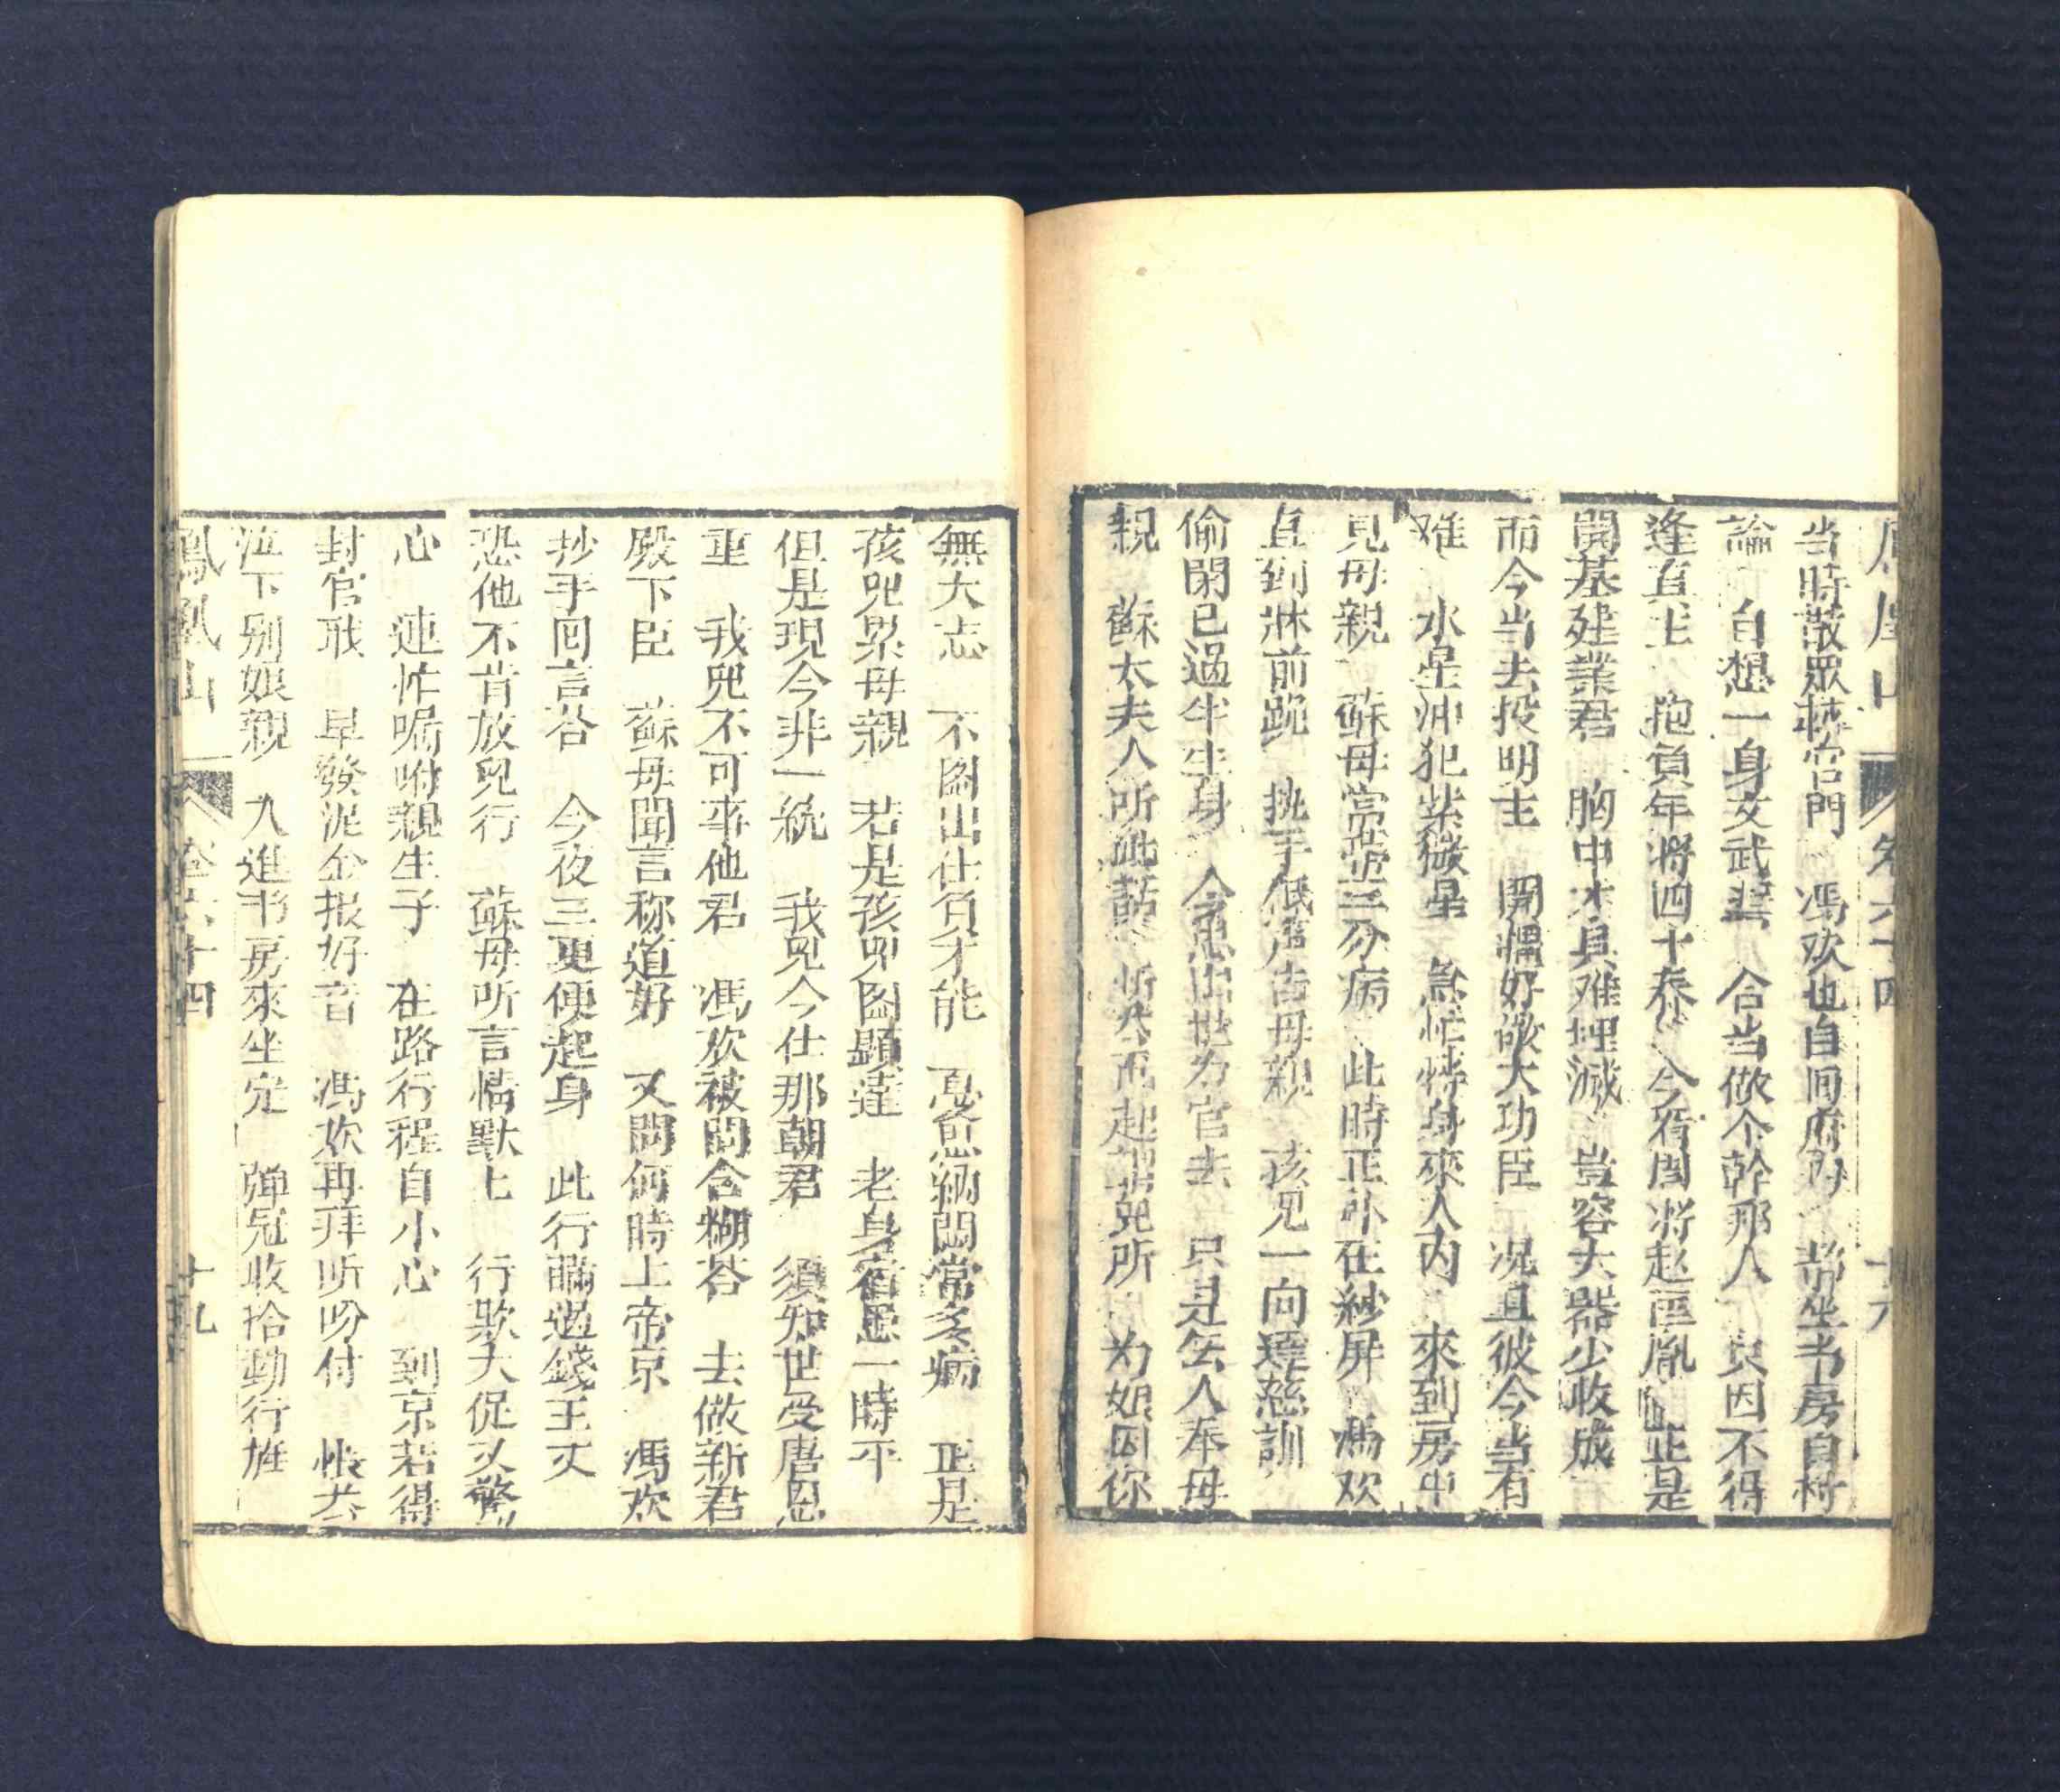 卷六十四
當時散眾轅宮門 馮欢也自回府內 劳坐书房自村
論 自想一身文武 合当做个幹那人 只因不得
逢真主 抱負年將四十春 今有周將赵匡胤 正是
開基建業君 胸中才具难埋滅 豈容大器少收成
而今当去投明主 開疆好做大功臣 况且彼今当有
难 水星沖犯紫微星 急忙转身來人內 來到房中
見母親 蘇母當堂三分病 此時正卧在紗屏 馮欢
直到牀前跪 挑手低声告母親 孩兒一向遵慈訓
偷閑已過半生身 今思出世为官去 只是無人奉母
親 蘇太夫人所此話 忻然而起 兒所 为娘因你
無大志 不圖出仕負才能 憂愈納悶常多病 正是
孩兒累母親 若是孩兒圖顯達 老身宿恙一時平
但是現今非一統 我兒今仕那朝君 須知世受唐恩
重 我兒不可事他君 馮欢被問含糊荅 去做新君
殿下臣 蘇母聞言称道好 又問何時上帝京 馮欢
抄手囘言荅 今夜三更便起身 此行瞞過錢王丈
恐他不肯放兒行 蘇母听言惦默上 行欺大促又驚
心 連忙囑咐親生子 在路行程自小心 到京若得
封官耿 早發泥金报好音 馮欢再拜听吩付 悵然
泣下别娘親 入進书房來坐定 弹冠收拾動行旌
鳳凰山 卷六十四 十九